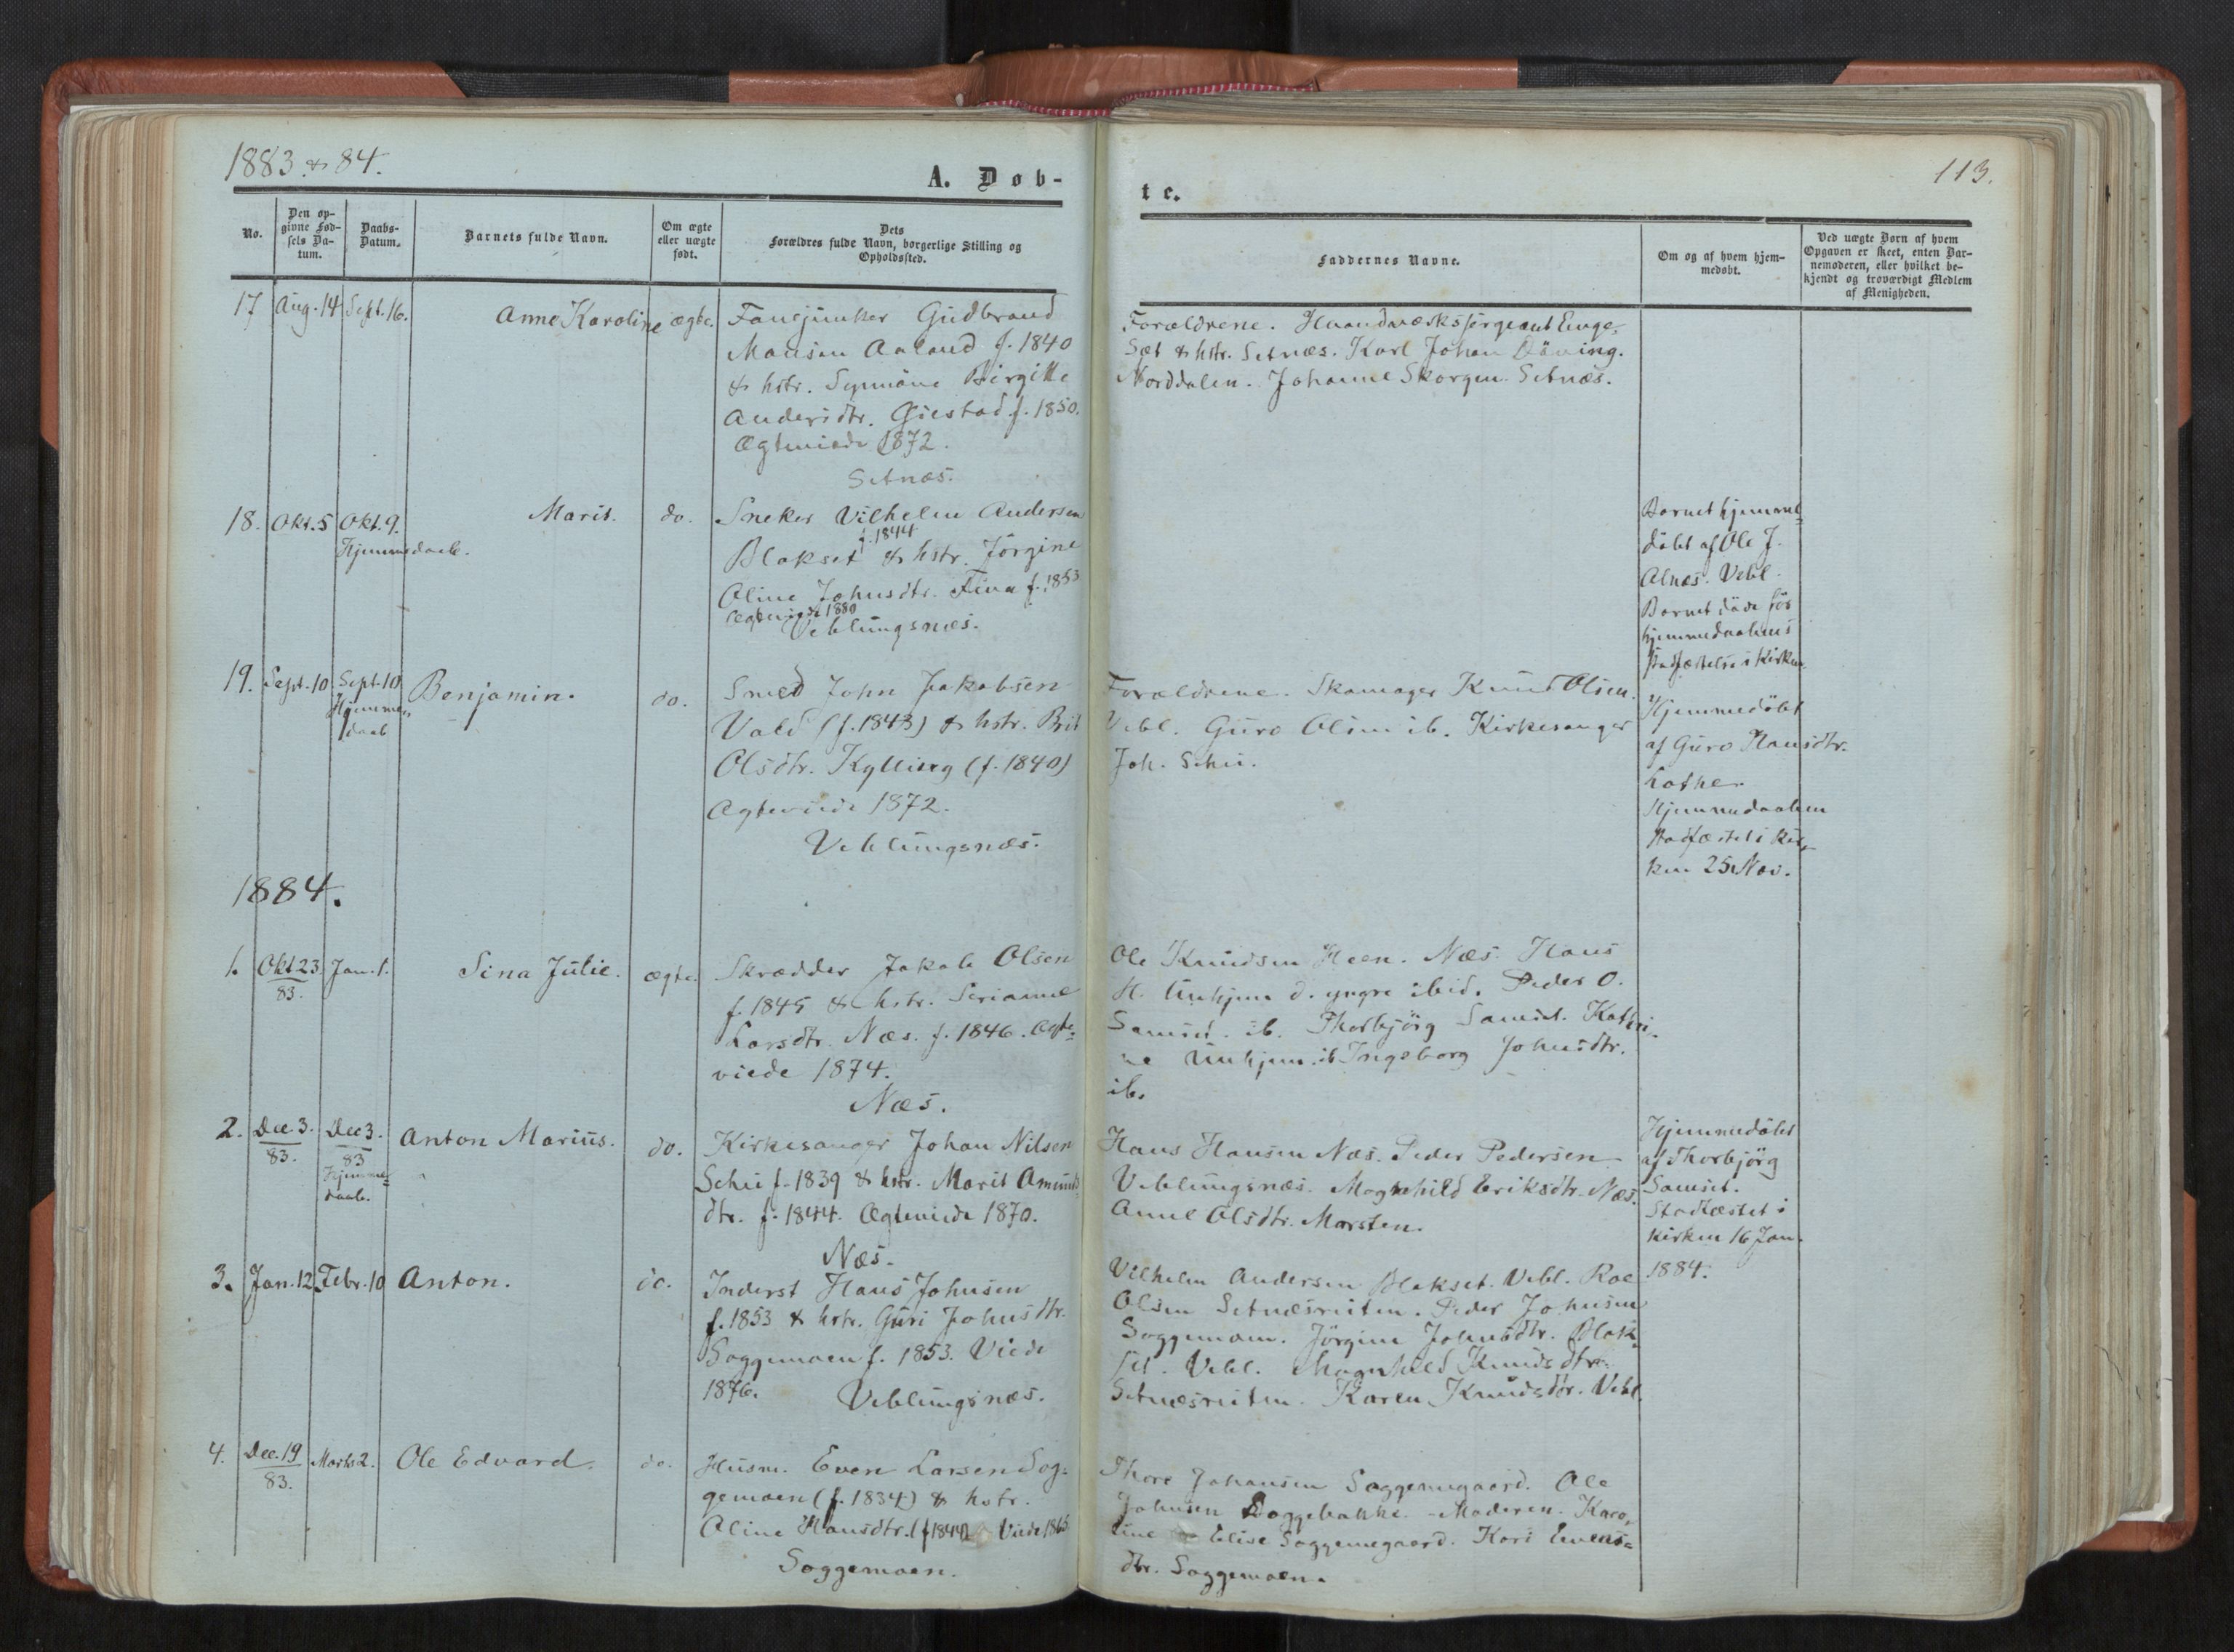 1883 & 84.
A. Døb-
te.
113.
No.
Den op-
givne Fød-
sels Da-
tum.
Daabs-
Datum.
Barnets fulde Navn.
Om ægte
eller uægte
født.
Dets
Forældres fulde Navn, borgerlige Stilling og
Opholdssted.
Faddernes Navne.
Om og af hvem hjem-
medøbt.
Ved uægte Børn af hvem
Opgaven er skeet, enten Bar-
nemoderen, eller hvilket be-
kjendt og troværdigt Medlem
af Menigheden.
17 Aug. 14 Sept. 16. Anne Karoline ægte.
Fanejunker Gudbrand
Monsen Aaland f. 1840
& hstr. Birgitte
Andersdtr. f. 1850.
Ægteviede 1872.
Setnæs.
Forældrene. Haandværkssergeant Enge-
Sæt & hstr. Setnæs. Karl Johan Döving.
Norddalen. Johanne Skorgen. Setnæs.
18. Okt. 5 Okt. 9.
Hjemmedaab.
Marit. do.
Sneker Vilhelm Andersen
f. 1844
Blakset & hstr. Jörgine
Oline Johnsdtr. Fiva f. 1853
Ægteviede 1880
Veblungsnæs.
Barnet hjemme-
döbt af Ole J.
Alnæs. Vebl.
Barnet döde för
hjemmedaabens
stadfæstelse i Kirken.
19. Sept. 10 Sept. 10
Hjemme-
daab
Benjamin. do.
Smed John Jakobsen
Vold (f. 1843) & hstr. Brit
Olsdtr. Kylling (f. 1840)
Ægteviede 1872.
Veblungsnæs.
Forældrene. Skomager Knud Olsen.
Vebl. Guro Olsen ib. Kirkesanger
Joh. Schei.
Hjemmedöbt
af Guro Hansdtr.
Hjemmedaaben
stadfæstet i Kir-
ken 25 Nov.
1884.
1. Okt 23. Jan. 1. Sina Julie. ægte.
83.
Skrædder Jakob Olsen
f. 1845 & hstr. Serianne
Larsdtr. Næs. f. 1846. Ægte-
viede 1874.
Næs.
Ole Knudsen Heen. Næs. Hans
H. Unhjem d. yngre ibid. Peder O.
Samset. ib. Thorbjörg Samset. Kathri-
ne Unhjem. ib Ingeborg Johnsdtr.
ib.
2. Dec. 3. Dec 3. Anton Marius. do.
83. 83
Hjemme-
daab.
Kirkesanger Johan Nilsen
Schei f. 1839 & hstr. Marit Amunds-
dtr. f. 1844. Ægteviede 1870.
Næs.
Hans Hansen Næs. Peder Pedersen
Veblungsnæs. Magnhild Eriksdtr. Næs.
Anne Olsdtr. Marsten.
Hjemmedöbt
af Thorbjörg
Samset.
Stadfæstet i
kirken 16 Jan.
1884.
3. Jan. 12 Febr. 10 Anton. do.
Inderst Hans Johnsen
f. 1853 & hstr. Guri Johnsdtr.
Soggemoen f. 1853. Viede
1876. Veblungsnæs.
Vilhelm Andersen Blakset. Vebl. Roe
Olsen Setnæsreiten. Peder Johnsen
Soggemoen. Jörgine Johnsdtr. Blak-
set. Vebl. Magnhild Knudsdtr.
Setnæsreiten. Karen Knudsdtr. Vebl.
4. Dec. 19 Marts 2. Ole Edvard. do.
83.
Husm. Even Larsen Sog-
gemoen (f. 1834) & hstr.
Oline Hansdtr. (f 1842 Viede 1865
Soggemoen.
Thore Johansen Soggemegaard. Ole
Johnsen Soggebakke. - Moderen. Karo-
line Elise Soggemegaard. Kari Evens-
dtr. Soggemoen.